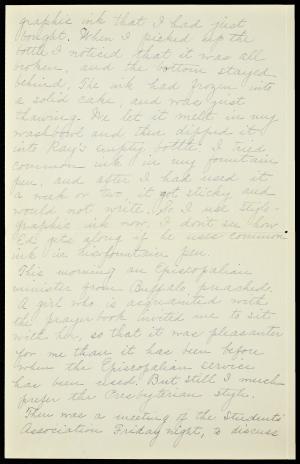 graphic ink that I had just
bought. When I picked up the
bottle I noticed that it was all
broken, and the bottom stayed
behind. The ink had frozen into
a solid cake, and was just
thawing. We let it melt in my
washbowl and then dipped it
into Ray's empty bottle. I tried
common ink in my fountain
pen, and after I had used it
a week or two it got sticky and
would not write. So I use stylo-
graphic ink now. I don't see how
Ed gets along if he uses common
ink in his fountain pen.
This morning an Episcopalian
minister from Buffalo preached.
A girl who is acquainted with
the prayerbook invited me to sit
with her, so that it was pleasanter
for me than it has been before
when the Episcopalian service
has been used. But still I much
prefer the Presbyterian style.
There was a meeting of the Students'
Association Friday night, to discuss